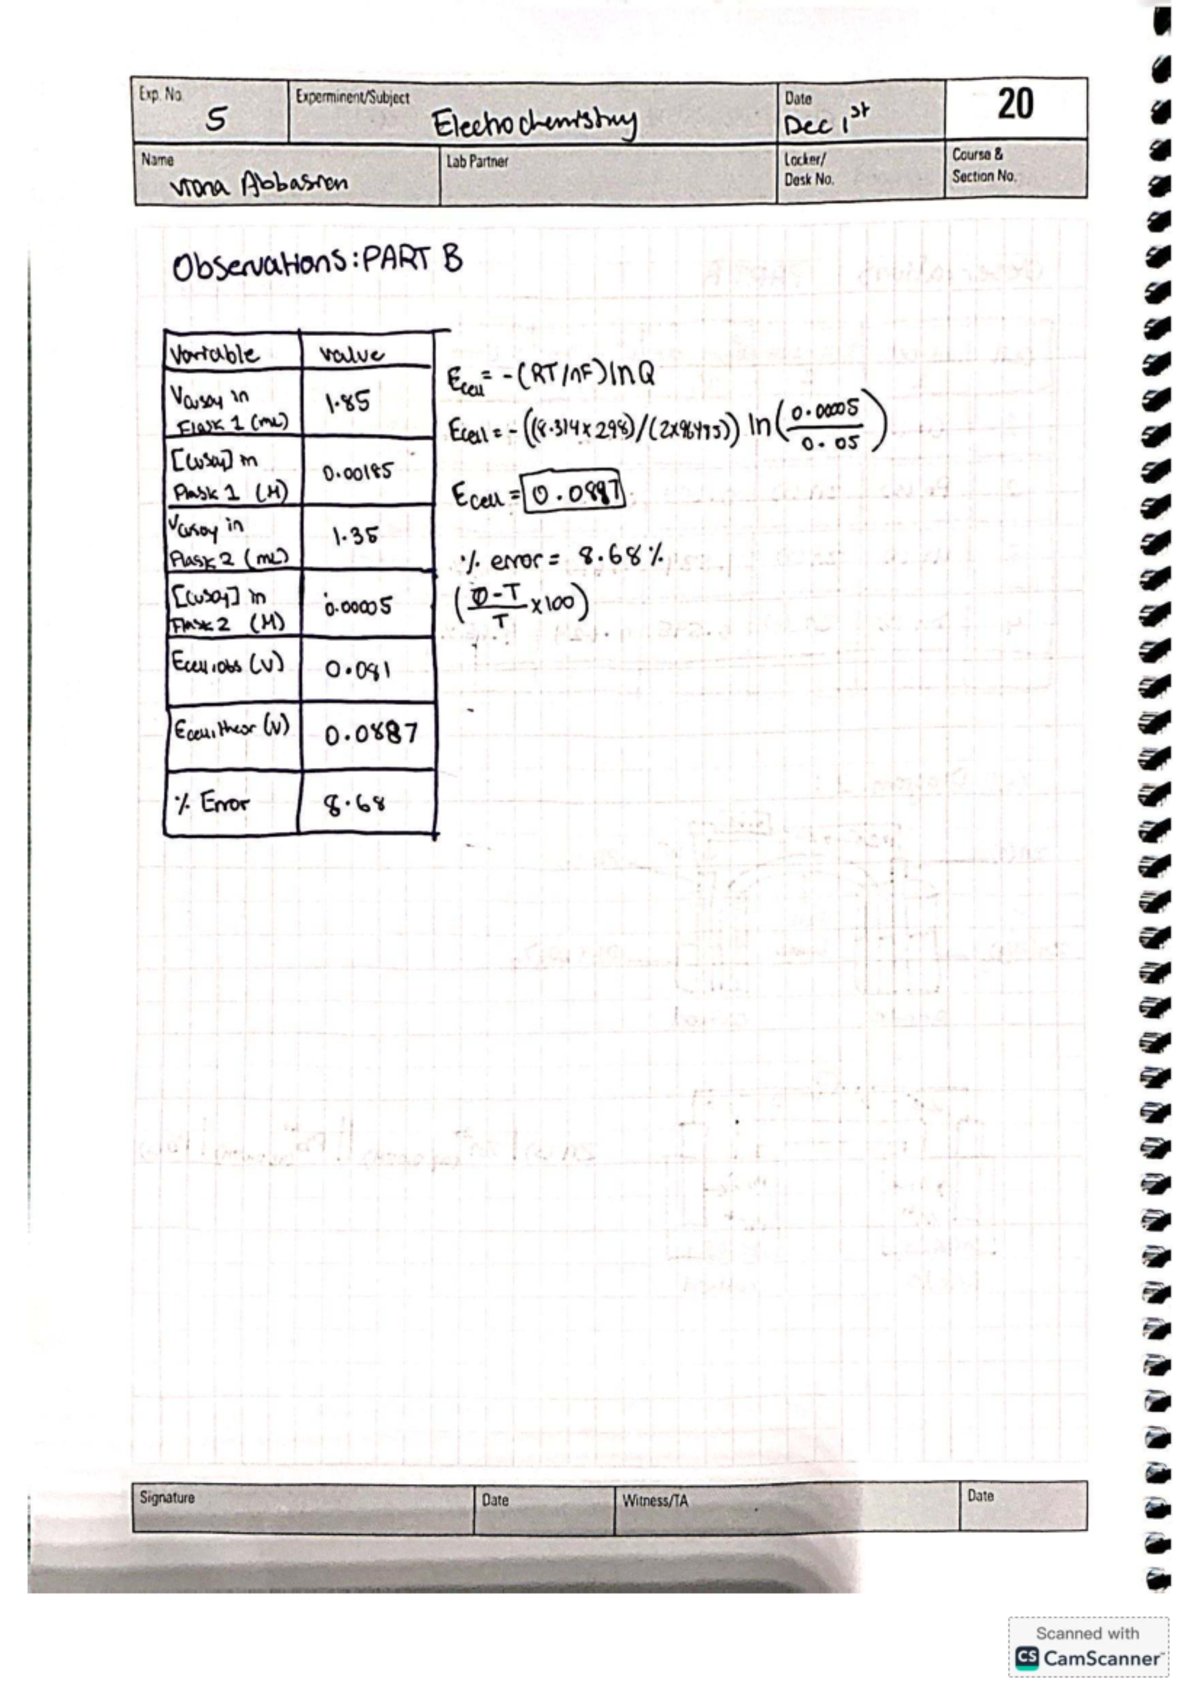 Exp. No.
5
Experminent/Subject
Electrochemistry
Date
Dec 1st
20
Name
Abbasian
Lab Partner
Locker/
Desk No.
Course &
Section No.
Observations: PART B
Variable value
VCuSO4 in
Flask 1 (mL) 1.85
[CuSO4] in
Flask 1 (M) 0.00185
VCuSO4 in
Flask 2 (mL) 1.35
[CuSO4] in
Flask 2 (M) 0.00005
Ecell,obs (V) 0.081
Ecell,theor (V) 0.0887
% Error 8.68
Ecell = -(RT/nF) ln Q
Ecell = -((8.314 x 298)/(2x96485)) ln (0.00005/0.05)
Ecell = 0.0887
% error = 8.68%
(O-T/T x100)
Signature
Date
Witness/TA
Date
Scanned with
CS CamScanner